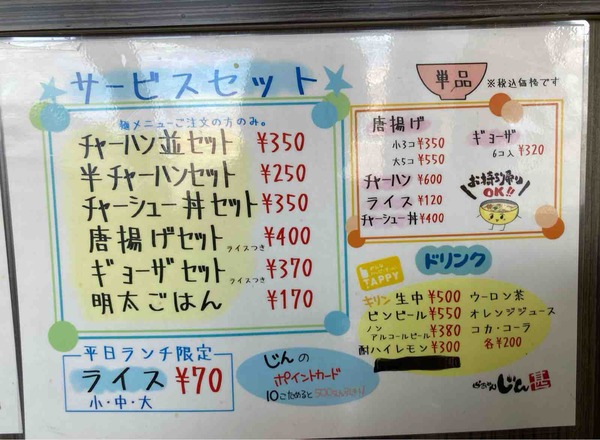 サービスセット
麺メニューご注文の方のみ。
チャーハン並セット ¥350
半チャーハンセット ¥250
チャーシュー丼セット ¥350
唐揚げセット ライスつき ¥400
ギョーザセット ライスつき ¥370
明太ごはん ¥170
平日ランチ限定
ライス ¥70
小・中・大
じんの
ポイントカード
10こためると
単品 ※税込価格です
唐揚げ
小3コ ¥350
大5コ ¥550
ギョーザ
6コ入 ¥320
チャーハン ¥600
ライス ¥120
チャーシュー丼 ¥400
お持ち帰り
OK!!
TAPPY
ドリンク
キリン 生中 ¥500
ビンビール ¥550
ノンアルコールビール ¥380
酎ハイレモン ¥300
ウーロン茶
オレンジジュース
コカ・コーラ
各¥200
じん